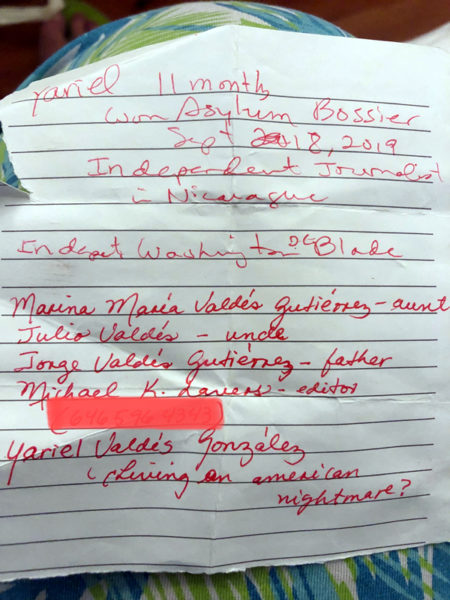 Yariel 11 month
won Asylum Bossier
Sept 18, 2019
Independent Journalist
in Nicarague
Indept Washington DC Blade
Marina María Valdés Gutiérrez - aunt
Julio Valdés - uncle
Jorge Valdés Gutiérrez - father
Michael K. Lavers - editor
Yariel Valdés González
Living an american
nightmare?